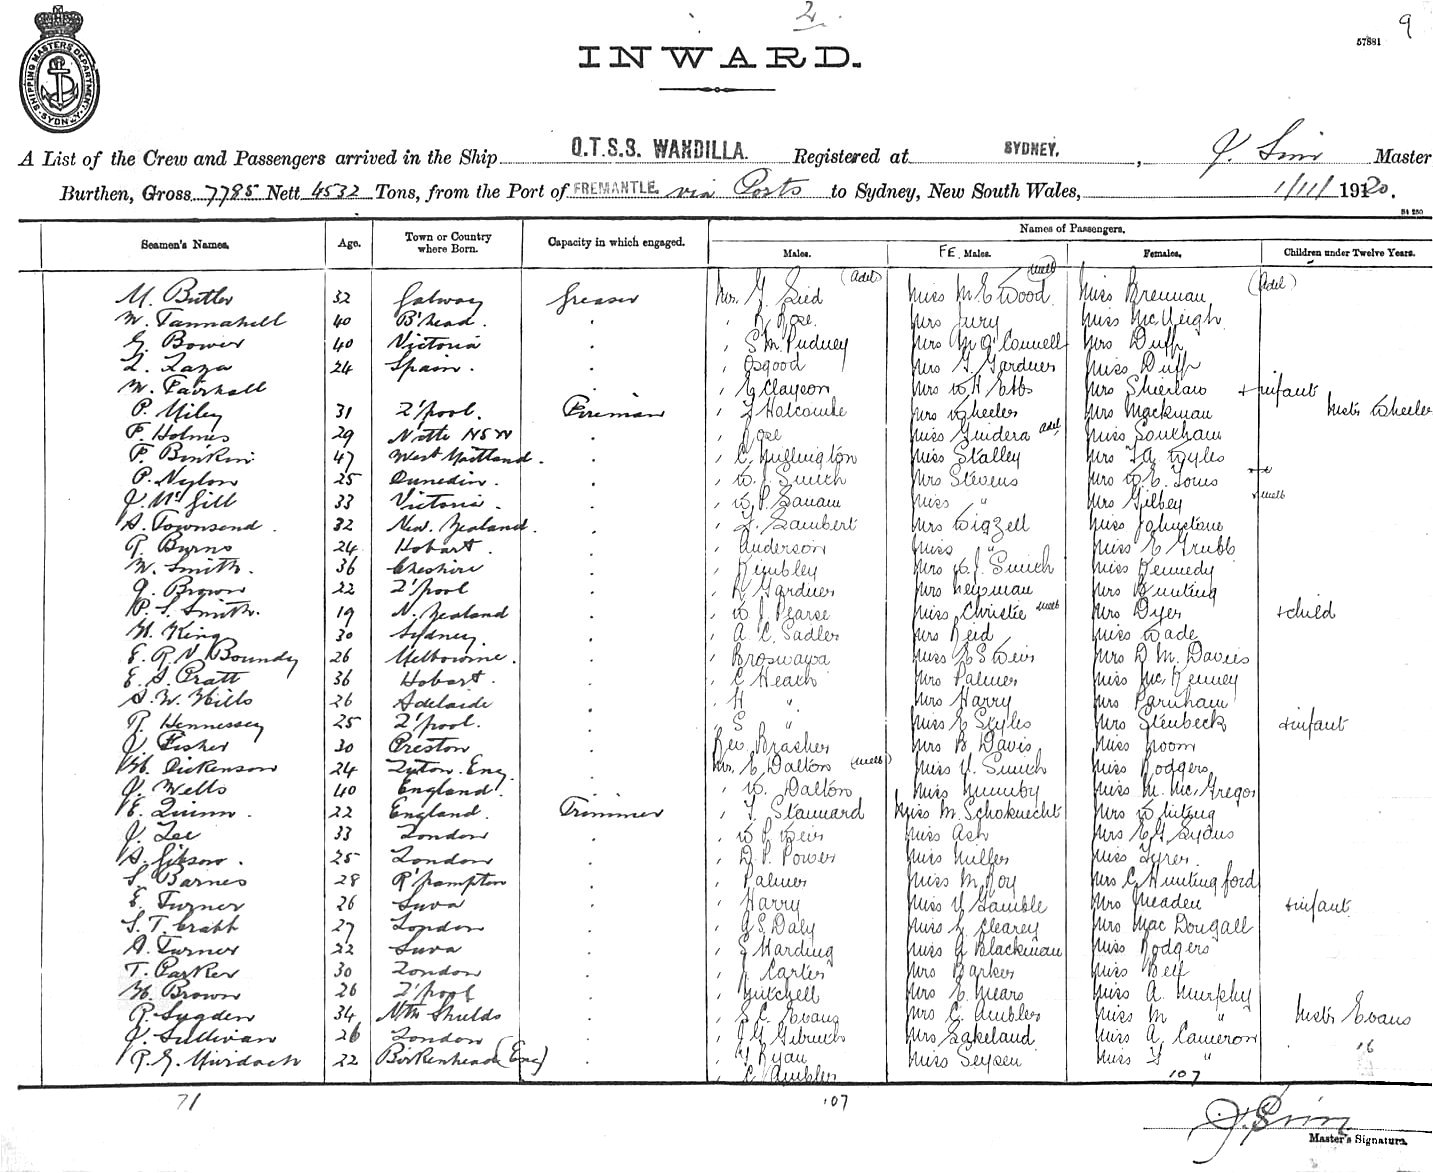 2.
9
57881
SHIPPING MASTERS DEPARTMENT SYDNEY
INWARD.
A List of the Crew and Passengers arrived in the Ship Q.T.S.S. WANDILLA. Registered at SYDNEY, J. Sim Master
Burthen, Gross 7785 Nett 4532 Tons, from the Port of FREMANTLE via Ports to Sydney, New South Wales, 1/11/1920.
St 250
Seamen's Names. Age. Town or Country where Born. Capacity in which engaged. Names of Passengers.
Males. FE Males. Females. Children under Twelve Years.
M. Butler 32 Galway Greaser Mr. G. Sied (Adel) Miss M E Wood (Melb) Miss Brennan (Adel)
W. Tannahell 40 B'head. . " R. Rose. Mrs Jury Miss McVeigh
G. Bower 40 Victoria . " S M Pudney Mrs M O'Connell Mrs Duff
L. Zaza 24 Spain. . " Osgood Mrs G. Gardner Miss Duff
W. Fairhall . " E Clayson Mrs W. H Ebbs Mrs Sherlaw + infant
P. Miley 31 L'pool. Fireman " F Holcombe Mrs Wheeler Mrs Mackman Mstr Wheeler
F. Holmes 29 Nttle NSW . " Rose Miss Guidera Adel Miss Southam
F. Binkin 47 West Maitland. . " C Millington Miss Stalley Mrs F. A Wyles
P. Nylon 25 Dunedin. . " W. J. Smith Mrs Stevens Mrs W. E. Toms
J. McGill 33 Victoria. . " W. P. Lanam Miss " Mrs Gilbey Melb
A. Townsend. 32 New Zealand. . " F. Lambert Mrs Wigzell Miss Johnstone
R. Burns 24 Hobart. . " Anderson Miss " Miss E Grubb
W. Smith. 36 Cheshire . " Kimbley Mrs W. J. Smith Miss Kennedy
J. Brown 22 L'pool . " R Gardner Mrs Heysman Mrs Bunting
P. S. Smith. 19 N. Zealand . " W J Pearse Miss Christie Melb Mrs Dyer + child
H. King 30 Sydney. . " A. C. Sadler Mrs Reid Miss Wade
E. R. V. Boundy 26 Melbourne. . " Broswawa Miss E S Weir Mrs D. M. Davies
E. A. Pratt 36 Hobart. . " C Heath Mrs Palmer Miss McKenney
A. W. Hills 26 Adelaide . " H " Mrs Harry Mrs Parnham
R. Hennessey 25 L'pool. . " S " Miss E Styles Mrs Steubeck + infant
J. Fisher 30 Preston . Rev. Brasher Mrs B Davis Miss Groom
H. Dickenson 24 Luton. Eng. . Mr. E Dalton (Melb) Miss V. Smith Miss Rodgers
J. Wells 40 England. . " W. Dalton Miss Mumby Miss M. McGregor
E. Quinn. 22 England. Trimmer " F Stannard Miss M. Schoknecht Mrs Whiting
J. Lee 33 London . " W P Weir Miss Ash Mrs E G Lyons
A. Gibson. 25 London . " D. P. Power Miss Miller Miss Tyrer
S. Barnes 28 R'hampton . " Palmer Miss M. Roy Mrs C Huntingford
E. Turner 26 Suva . " Harry Miss V Gamble Mrs Meaden + infant
S. T. Crabb 27 London . " G S Daly Miss E Clearey Mrs MacDougall
A. Turner 22 Suva . " G Harding Miss G Blackman Miss Rodgers
T. Parker 30 London . " J Carter Mrs Parker Miss Bell
H. Brown 26 L'pool . " Mitchell Mrs E Mears Miss A. Murphy
R. Sugden 34 Nth Shields . " S. C. Evans Mrs C. Ambler Miss M " Mstr Evans
J. Sullivan 26 London . " J G Gibuch Mrs Lakeland Miss A. Cameron 16
R. G. Murdoch 22 Birkenhead (Eng) . " G Ryan Miss Seysen Miss F "
" C Ambler 107
71 107
J. Sim
Master's Signature.